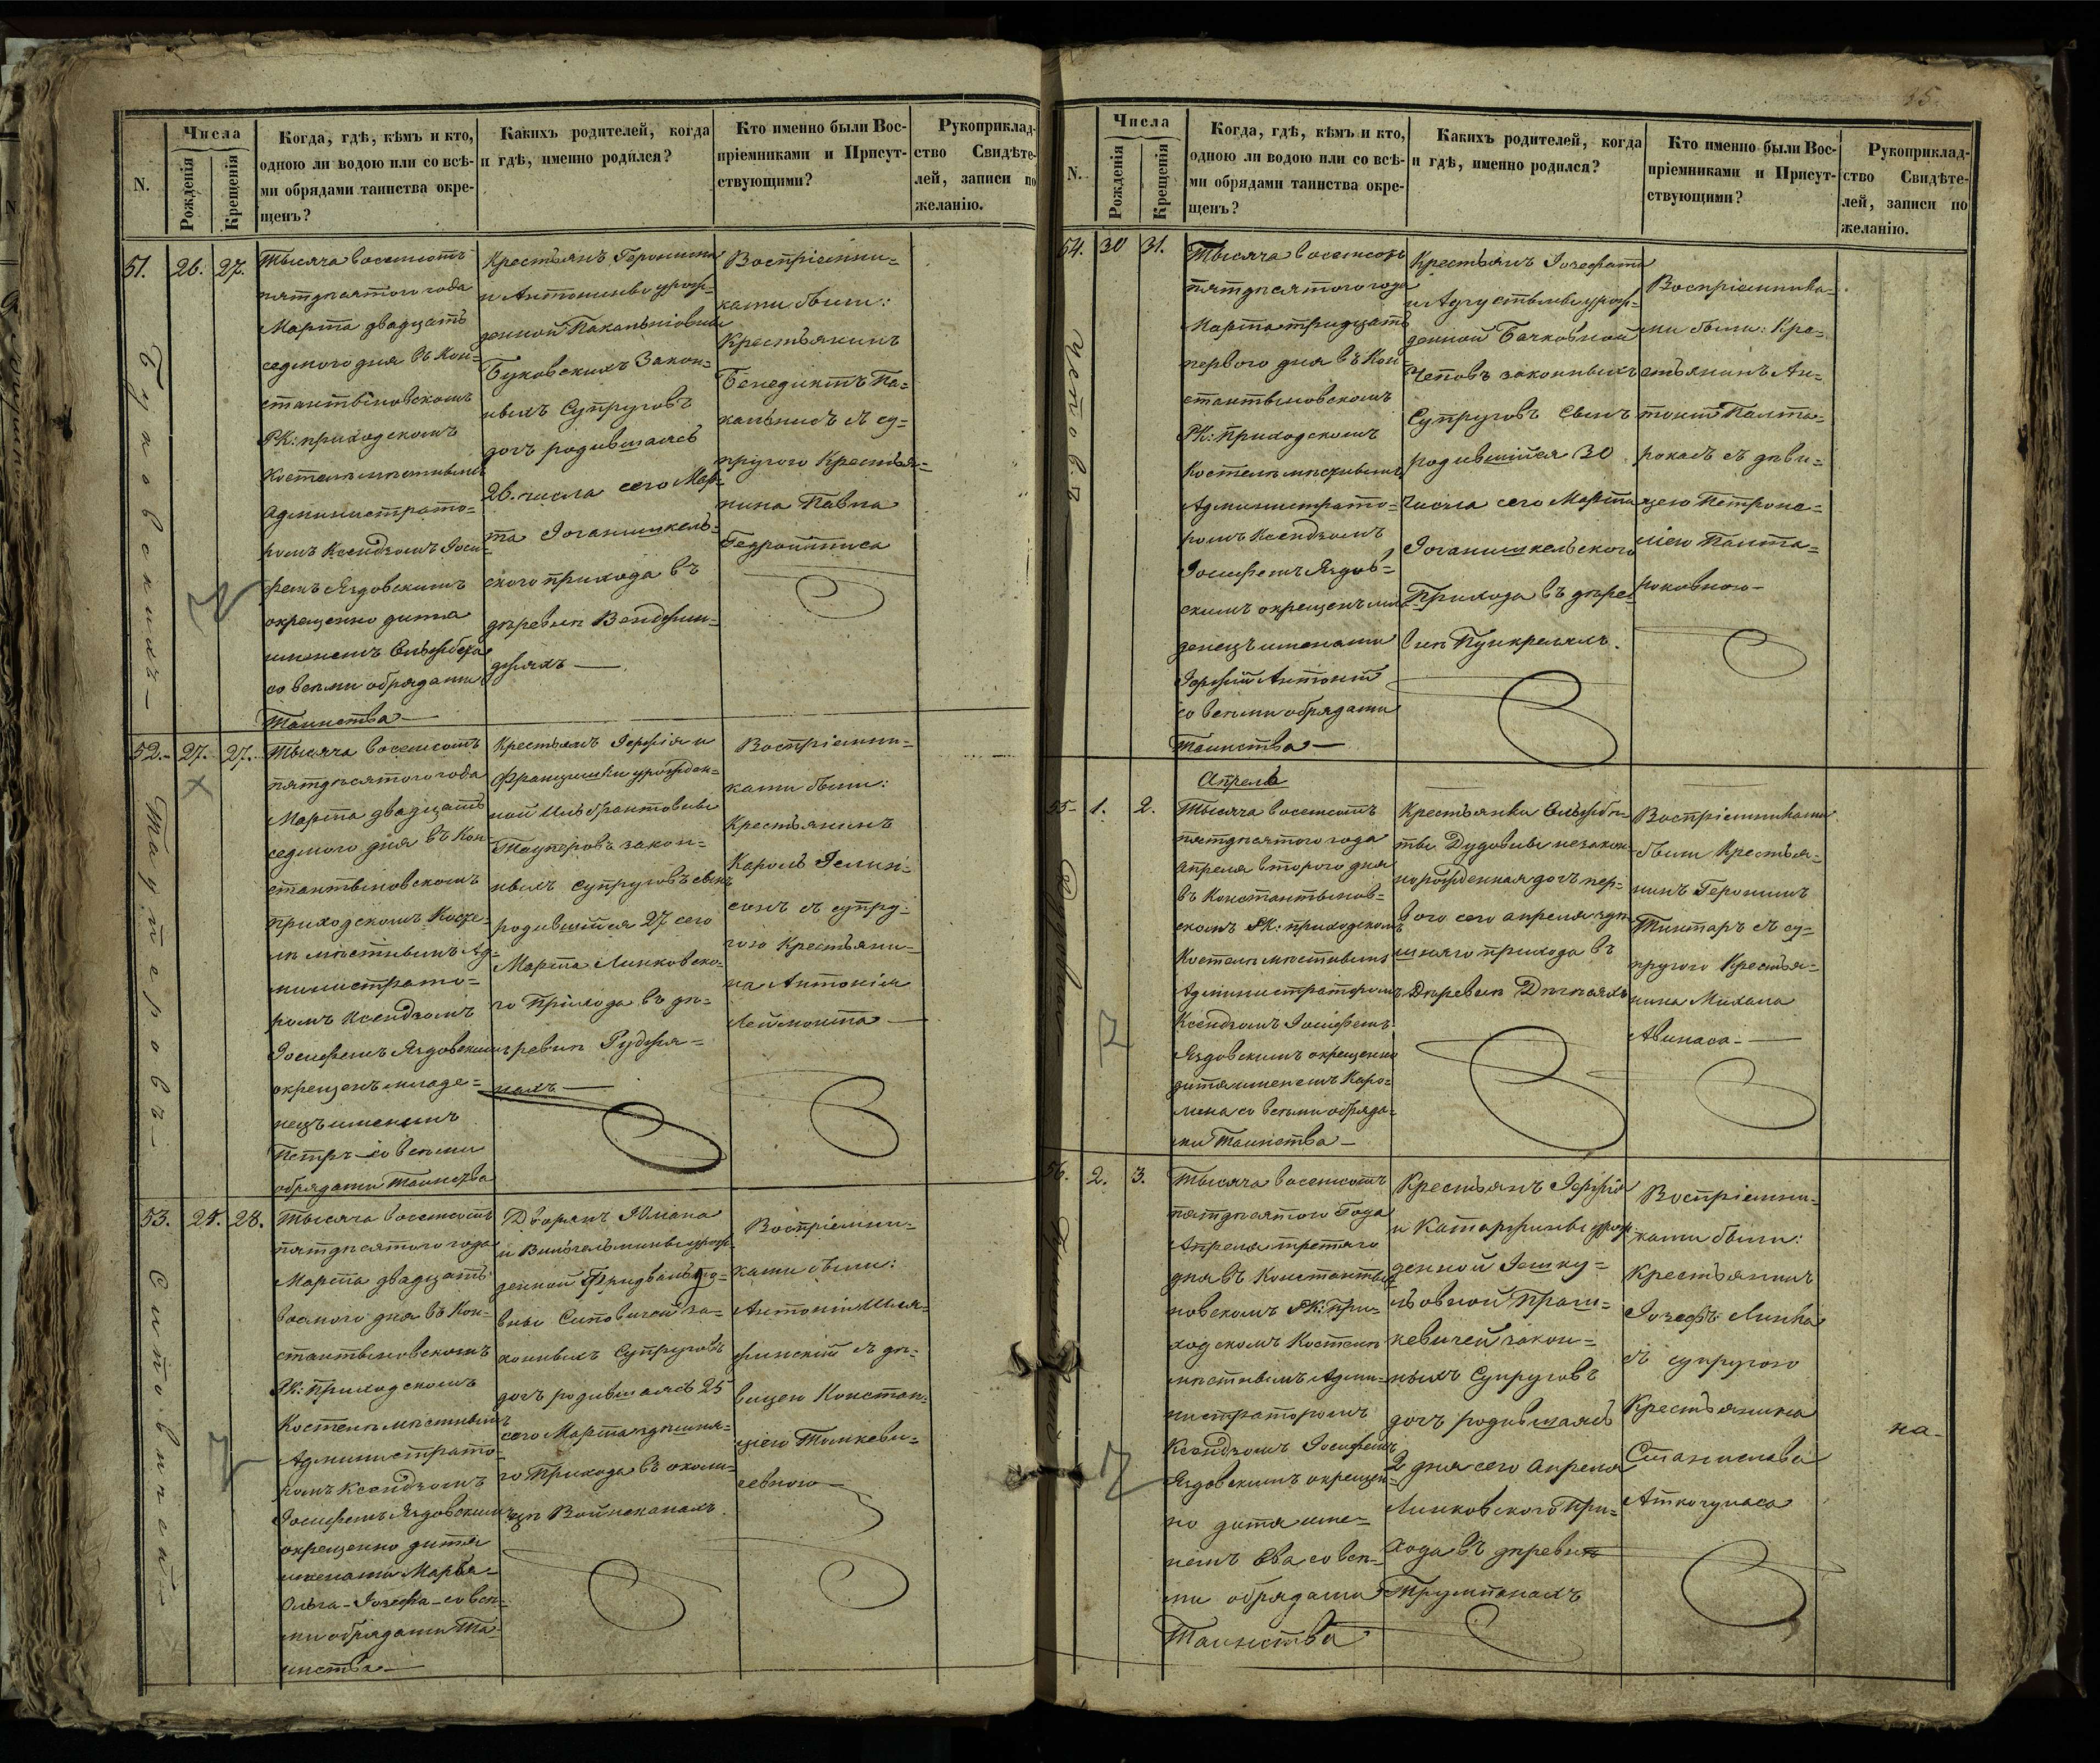 N.
Числа
Рожденія
Крещенія
Когда, гдѣ, кѣмъ и кто,
одною ли водою или со всѣ-
ми обрядами таинства окре-
щенъ?
Какихъ родителей, когда
и гдѣ, именно родился?
Кто именно были Вос-
пріемниками и Присут-
ствующими?
Рукоприклад-
ство Свидѣте-
лей, записи по
желанію.
51.
26.
27.
Буковскихъ
Тысяча восемсотъ
пятдѣсятого года
Марта двадцать
седмого дня въ Кон-
стантыновскомъ
РК: приходскомъ
Костелѣ мѣстнымъ
Администрато-
ромъ Ксендзомъ Іоси-
фемъ Яздовскимъ
окрещенно дитя
именемъ Ельжбета
со всѣми обрядами
Таинства
Крестьянъ Геронима
и Антонины урож-
денной
Буковскихъ Закон-
ныхъ Супруговъ
дочъ родившаясь
26. числа сего Мар-
та Іоганишкель-
ского прихода въ
дѣревнѣ
Воспріемни-
ками были:
Крестьянинъ
Бенедиктъ Па-
кальнисъ съ су-
пругою Крестья-
нина Павла
52.
27.
27.
Тауперовъ
Тысяча восемсотъ
пятдѣсятого года
Марта двадцать
седмого дня въ Кон-
стантыновскомъ
приходскомъ Косте-
лѣ мѣстнымъ Ад-
министрато-
ромъ Ксендзомъ
Іосифемъ Яздовскимъ
окрещенъ младе-
нецъ именемъ
Петръ со всѣми
обрядами Таинства
Крестьянъ Іержія и
Францишки урожден-
ной
Тауперовъ закон-
ныхъ супруговъ сынъ
родившійся 27 сего
Марта Линковско-
го Прихода въ дѣ-
ревнѣ
Воспріемни-
ками были:
Крестьянинъ
Кароль
съ супру-
гою Крестьяни-
на Антонія
53.
25.
28.
Ситовичей
Тысяча восемсотъ
пятдѣсятого года
Марта двадцать
восмого дня въ Кон-
стантыновскомъ
РК: приходскомъ
Костелѣ мѣстнымъ
Администрато-
ромъ Ксендзомъ
Іосифемъ Яздовскимъ
окрещенно дитя
именами Марья-
Ольга-Іозефа-со всѣ-
ми обрядами Та-
инства
Дворянъ Юліана
и Вильгельмины урож-
денной
Ситовичей за-
конныхъ Супруговъ
дочъ родившаясь 25
сего Марта здѣшня-
го Прихода въ околи-
цѣ
Воспріемни-
ками были:
Антоній
съ дѣ-
вицею Констан-
ціею Томкеви-
чевною
N.
Числа
Рожденія
Крещенія
Когда, гдѣ, кѣмъ и кто,
одною ли водою или со всѣ-
ми обрядами таинства окре-
щенъ?
Какихъ родителей, когда
и гдѣ, именно родился?
Кто именно были Вос-
пріемниками и Присут-
ствующими?
Рукоприклад-
ство Свидѣте-
лей, записи по
желанію.
54.
30
31.
Тысяча восемсотъ
пятдѣсятого года
Марта тридцать
первого дня въ Кон-
стантыновскомъ
РК: приходскомъ
Костелѣ мѣстнымъ
Администрато-
ромъ Ксендзомъ
Іосифемъ Яздов-
скимъ окрещенъ мла-
денецъ именами
Іержій Антоній
со всѣми обрядами
Таинства
Крестьянъ Іозефата
и Аугустыны урож-
денной Бачковной
законныхъ
Супруговъ Сынъ
родившійся 30
числа сего Марта
Іоганишкельского
Прихода въ дѣре-
внѣ
Воспріемника-
ми были: Кре-
стьянинъ Ан-
тоній Палта-
рокасъ съ дѣви-
цею Петроне-
лею Палта-
роковною
Апрель
55.
1.
2.
Тысяча восемсотъ
пятдѣсятого года
апреля второго дня
въ Константынов-
скомъ РК: приходскомъ
Костелѣ мѣстнымъ
Администраторомъ
Ксендзомъ Іосифемъ
Яздовскимъ окрещенно
дитя именемъ Каро-
лина со всѣми обряда-
ми Таинства
Крестьянки Ельжбѣ-
ты Дудовны незакон-
норожденная дочъ пер-
вого сего апреля здѣ-
шняго прихода въ
Дѣревнѣ
Воспріемниками
были Крестья-
нинъ Геронимъ
съ су-
пругою Крестья-
нина Михала
56.
2.
3.
Тысяча восемсотъ
пятдѣсятого Года
Апреля третяго
дня въ Константы-
новскомъ РК: при-
ходскомъ Костелѣ
мѣстнымъ Адми-
нистраторомъ
Ксендзомъ Іосифемъ
Яздовскимъ окрещен-
но дитя име-
немъ Ева со всѣ-
ми обрядами
Таинства
Крестьянъ Іержія
и Катаржины урож-
денной
законн-
ныхъ Супруговъ
дочъ родившаясь
2 дня сего Апреля
Линковского При-
хода въ дѣревнѣ
Трумпанахъ
Воспріемни-
ками были:
Крестьянинъ
Іозефъ Линка
съ супругою
Крестьянина
Станислава
Аткочунаса
на-